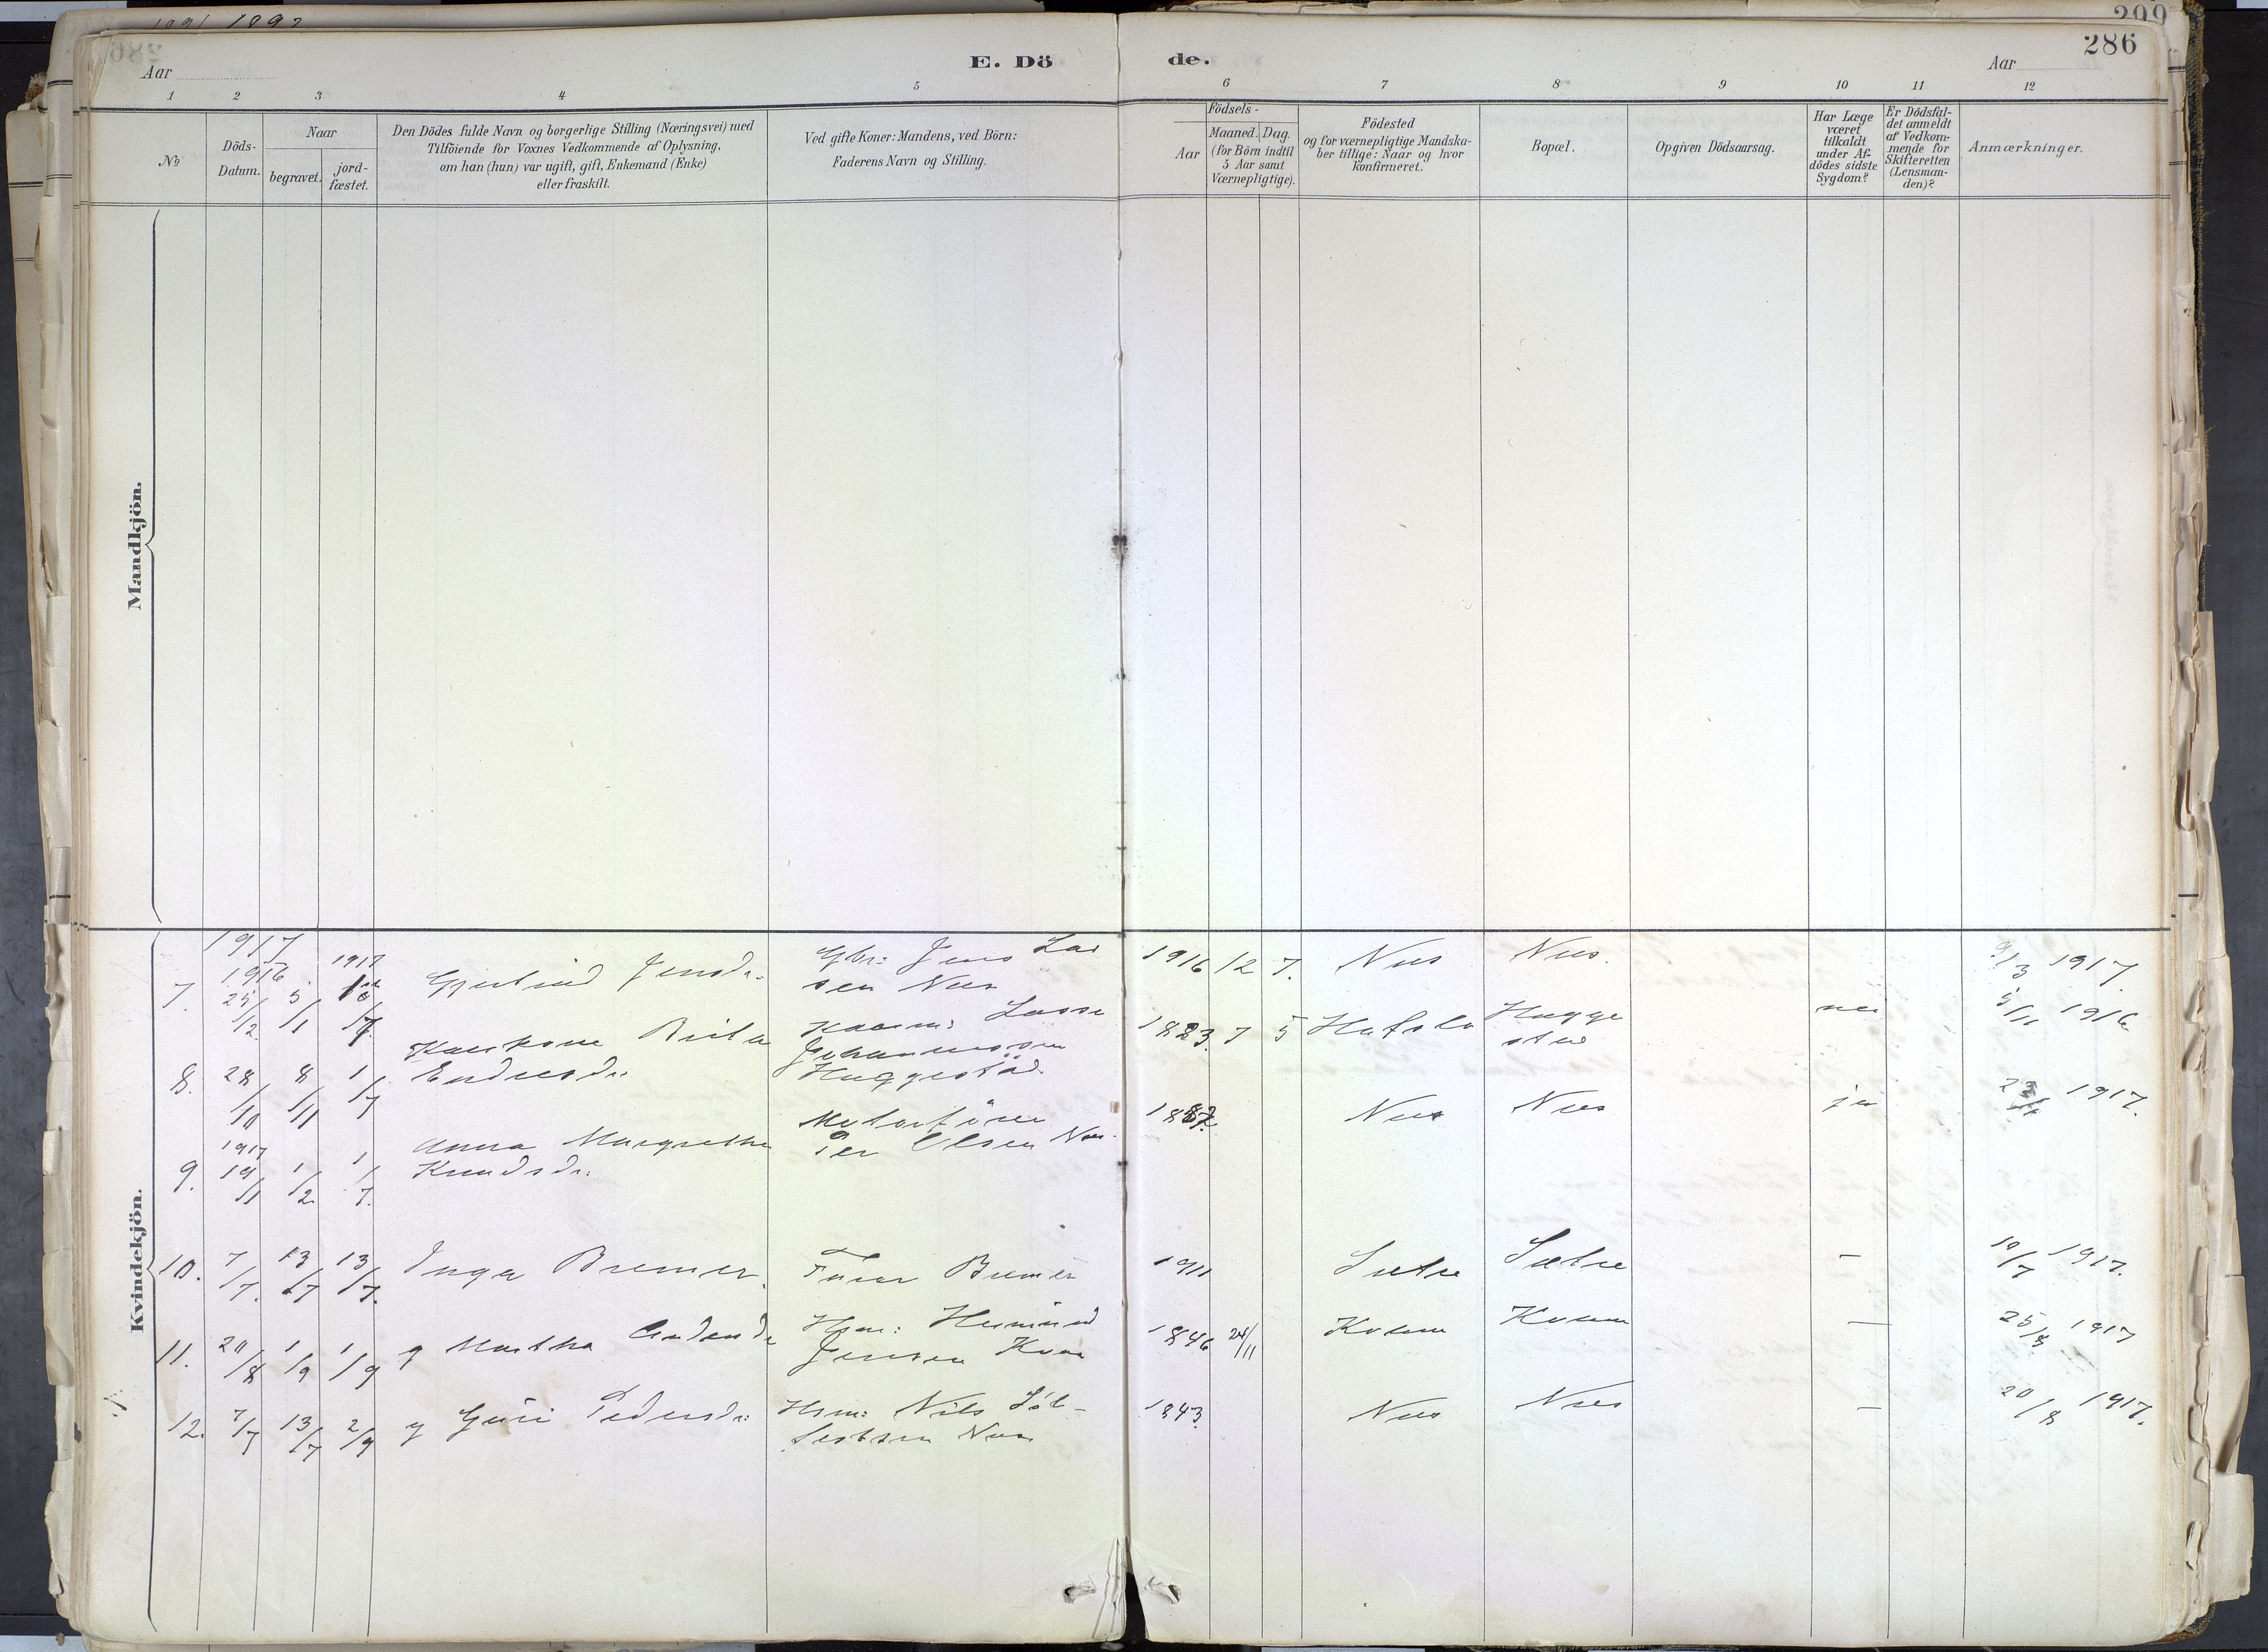 1891 1892
299
286
Aar
E. Dö
de.
Aar
1 2 3 4 5 6 7 8 9 10 11 12
No
Döds-
Datum.
Naar
begravet.
jord-
fæstet.
Den Dödes fulde Navn og borgerlige Stilling (Næringsvei) med
Tilföiende for Voxnes Vedkommende af Oplysning,
om han (hun) var ugift, gift, Enkemand (Enke)
eller fraskilt.
Ved gifte Koner: Mandens, ved Börn:
Faderens Navn og Stilling.
Födsels-
Aar
Maaned. Dag.
(for Börn indtil
5 Aar samt
Værnepligtige).
Födested
og for værnepligtige Mandska-
ber tillige: Naar og hvor
konfirmeret.
Bopæl.
Opgiven Dödsaarsag.
Har Læge
været
tilkaldt
under Af-
dödes sidste
Sygdom?
Er Dödsfal-
det anmeldt
af Vedkom-
mende for
Skifteretten
(Lensman-
den)?
Anmærkninger.
Mandkjön.
Kvindekjön.
1917
1916 1917
7. 25/12 5/1 Jensdr. Gbr: Jens Las
sen Nes 1916 12 7. Nes Nes. 9/3 1917.
8. 28/10 8/11 1/7 Brita
Endresdr. Lasse
Johannessen
Huggestad 1823. 7 5 Hafslo Hugge
stad nei 5/11 1916
1917
9. 19/1 1/2 1/7. Anna Margrethe
Knudsdr: Motorförer
Per Olsen Nes. Nes Nes ja 1917.
10. 7/7. 13/7 13/7. Inga Bremer. Bremer 1911 Sætre Sætre — 10/7 1917.
11. 20/8 1/9 1/9 g Martha Hsm: Hermund
Jensen Kvam 1846 24/11 Kvam Kvam — 25/8 1917
12. 7/7 13/7 2/9 g Guri Pedersdr: Hsm: Nils Söl-
festsen Nes 1843. Nes Nes — 20/8 1917.